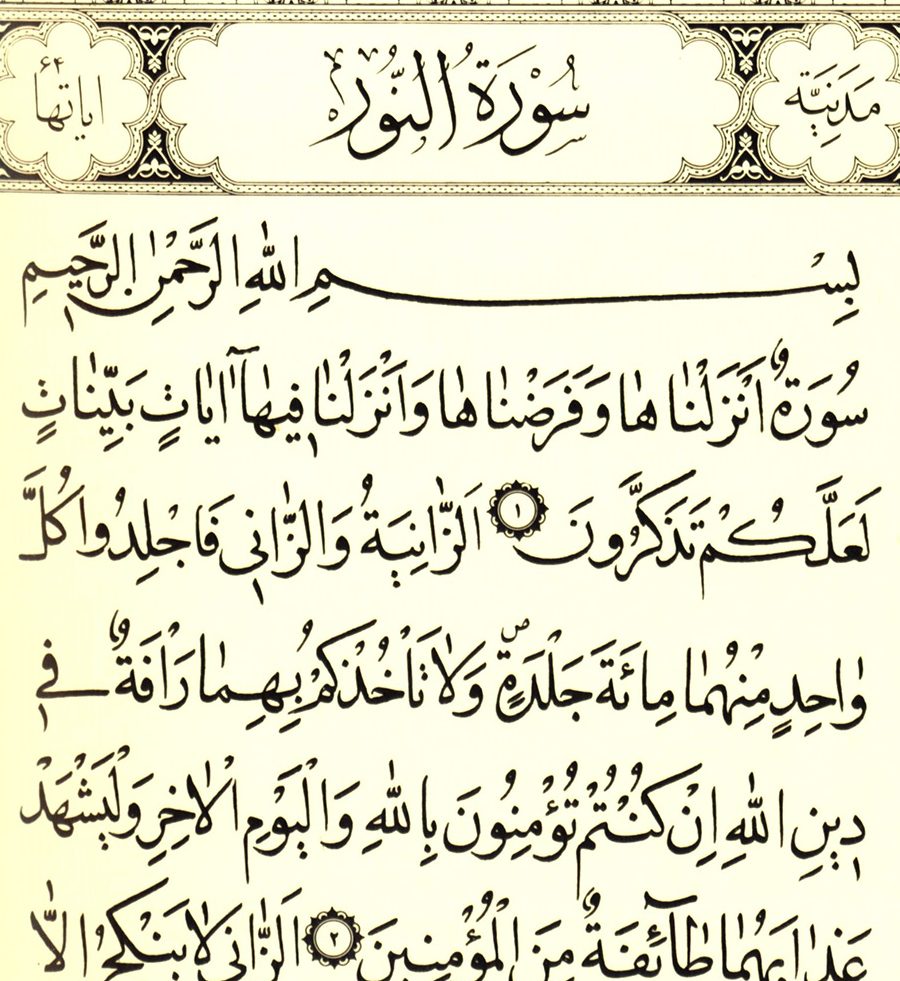 مَدَنِيَّة سُورَةُ النُّورِ ايَاتُهَا ٦٤
بِسْمِ اللهِ الرَّحْمٰنِ الرَّحِيمِ
سُورَةٌ اَنْزَلْنَاهَا وَفَرَضْنَاهَا وَاَنْزَلْنَا فِيهَآ اٰيَاتٍ بَيِّنَاتٍ
لَعَلَّكُمْ تَذَكَّرُونَ ١ اَلزَّانِيَةُ وَالزَّانِي فَاجْلِدُوا كُلَّ
وَاحِدٍ مِنْهُمَا مِائَةَ جَلْدَةٍ ۖ وَلَا تَاْخُذْكُمْ بِهِمَا رَاْفَةٌ فِي
دِينِ اللهِ اِنْ كُنْتُمْ تُؤْمِنُونَ بِاللهِ وَالْيَوْمِ الْاٰخِرِ وَلْيَشْهَدْ
عَذَابَهُمَا طَآئِفَةٌ مِنَ الْمُؤْمِنِينَ ٢ اَلزَّانِي لَا يَنْكِحُ اِلَّا